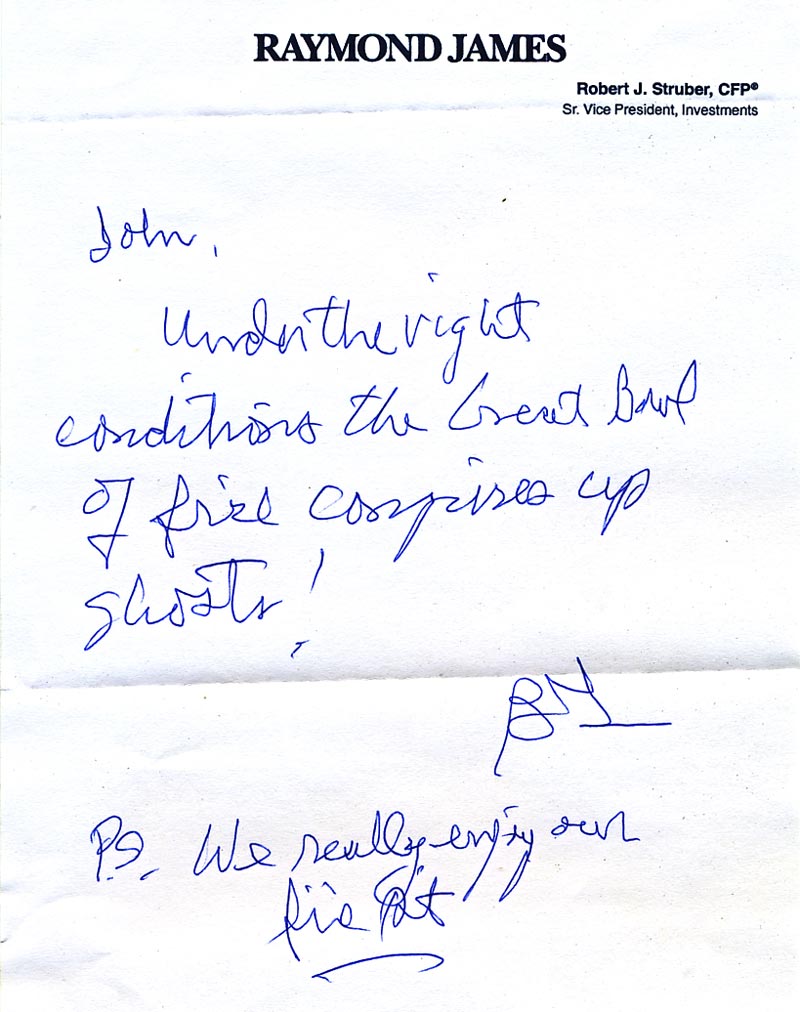 RAYMOND JAMES
Robert J. Struber, CFP®
Sr. Vice President, Investments
John,
Under the right
conditions the Great Bowl
of fire conspires up
ghosts!
P.S. We really enjoy our
fire Pit